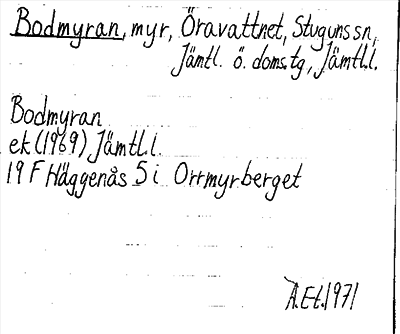 Bodmyran, myr, Öravattnet, Stuguns sn,
Jämtl. ö. doms.tg, Jämtl.l.
Bodmyran
ek (1969) Jämtl.l.
19 F Häggenås 5 i Orrmyrberget
Å.Et.1971